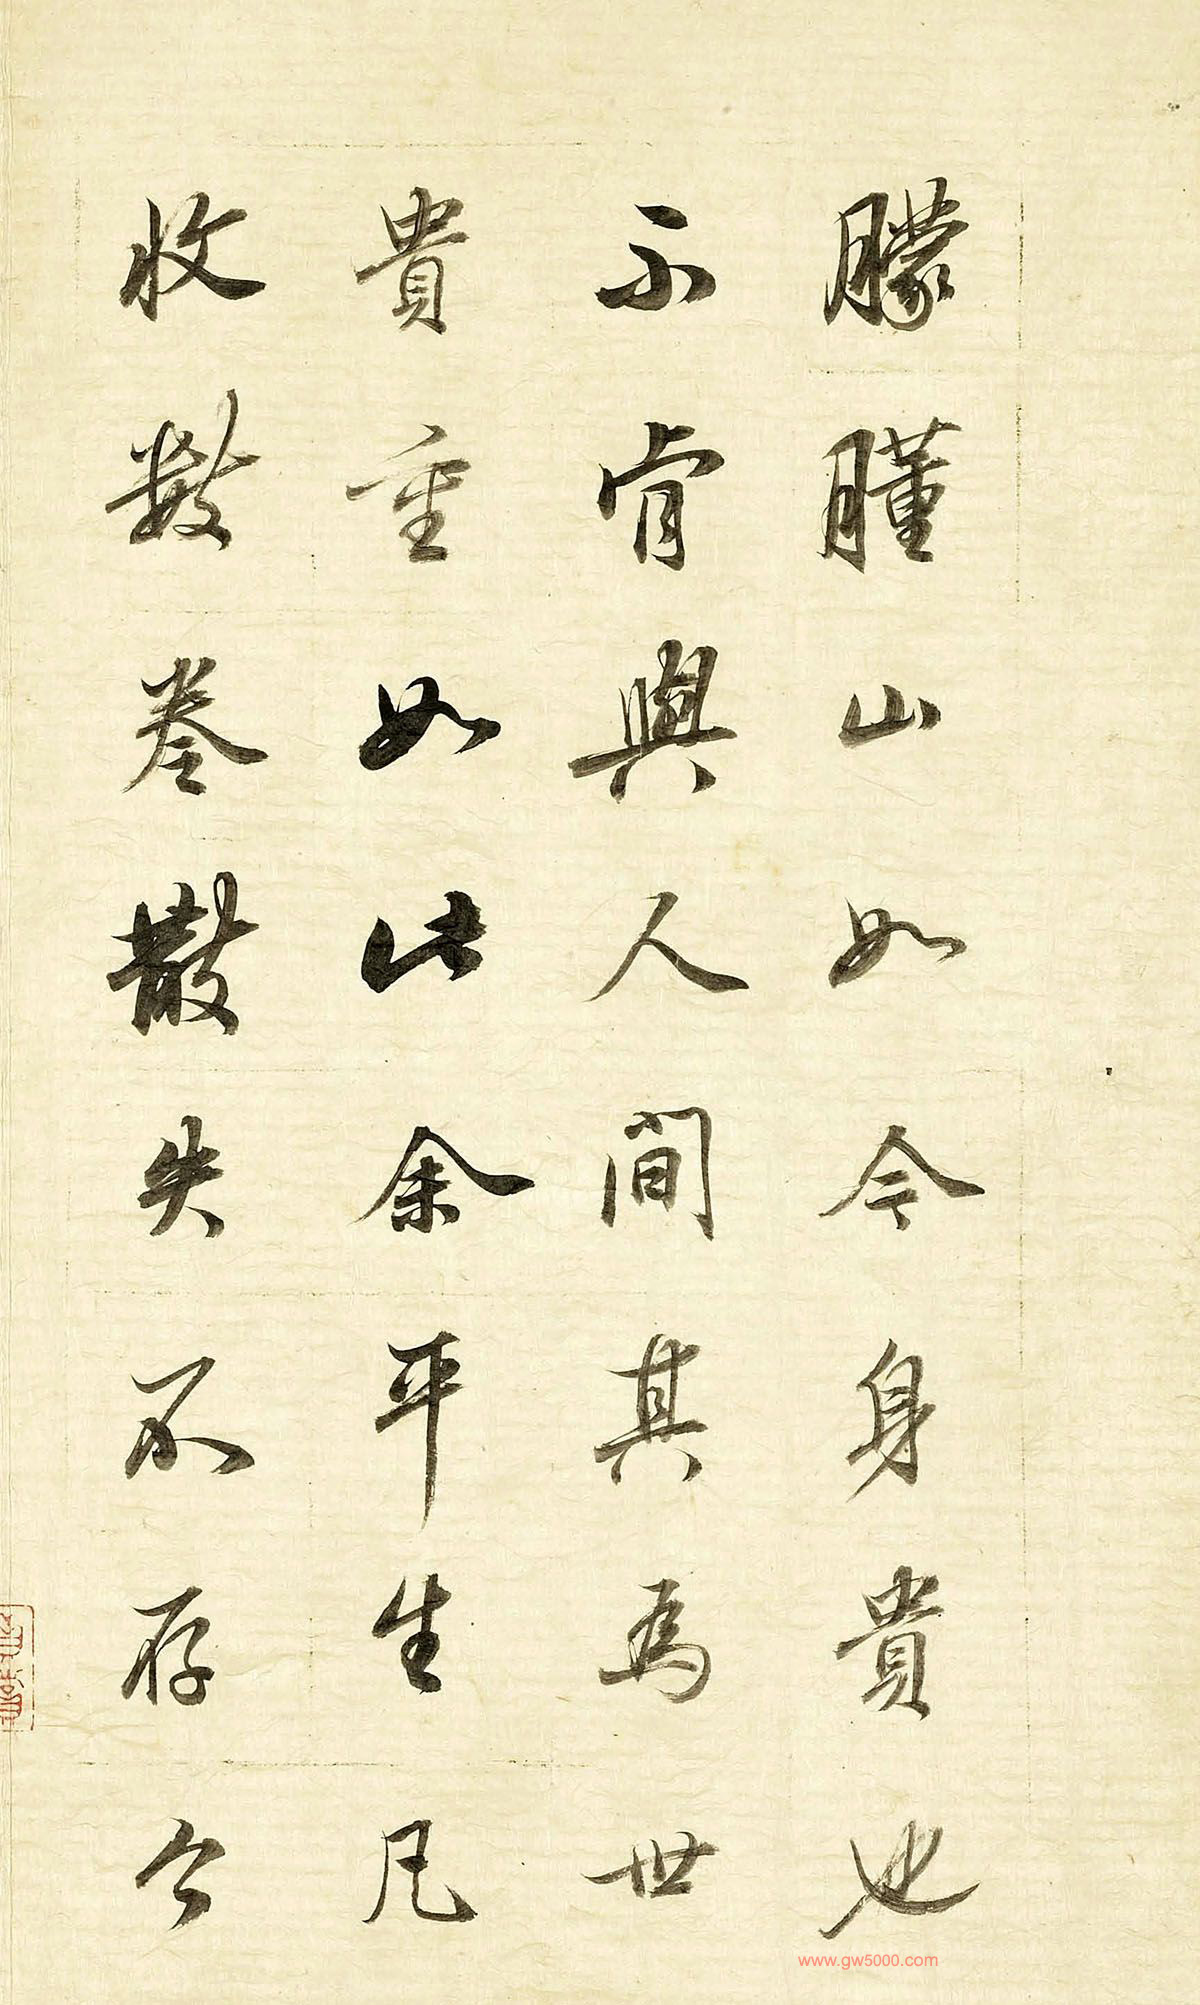 朦朣山如今身貴也
不肯與人間其為世
貴重如此余平生凡
收數卷散失不存今
www.gw5000.com